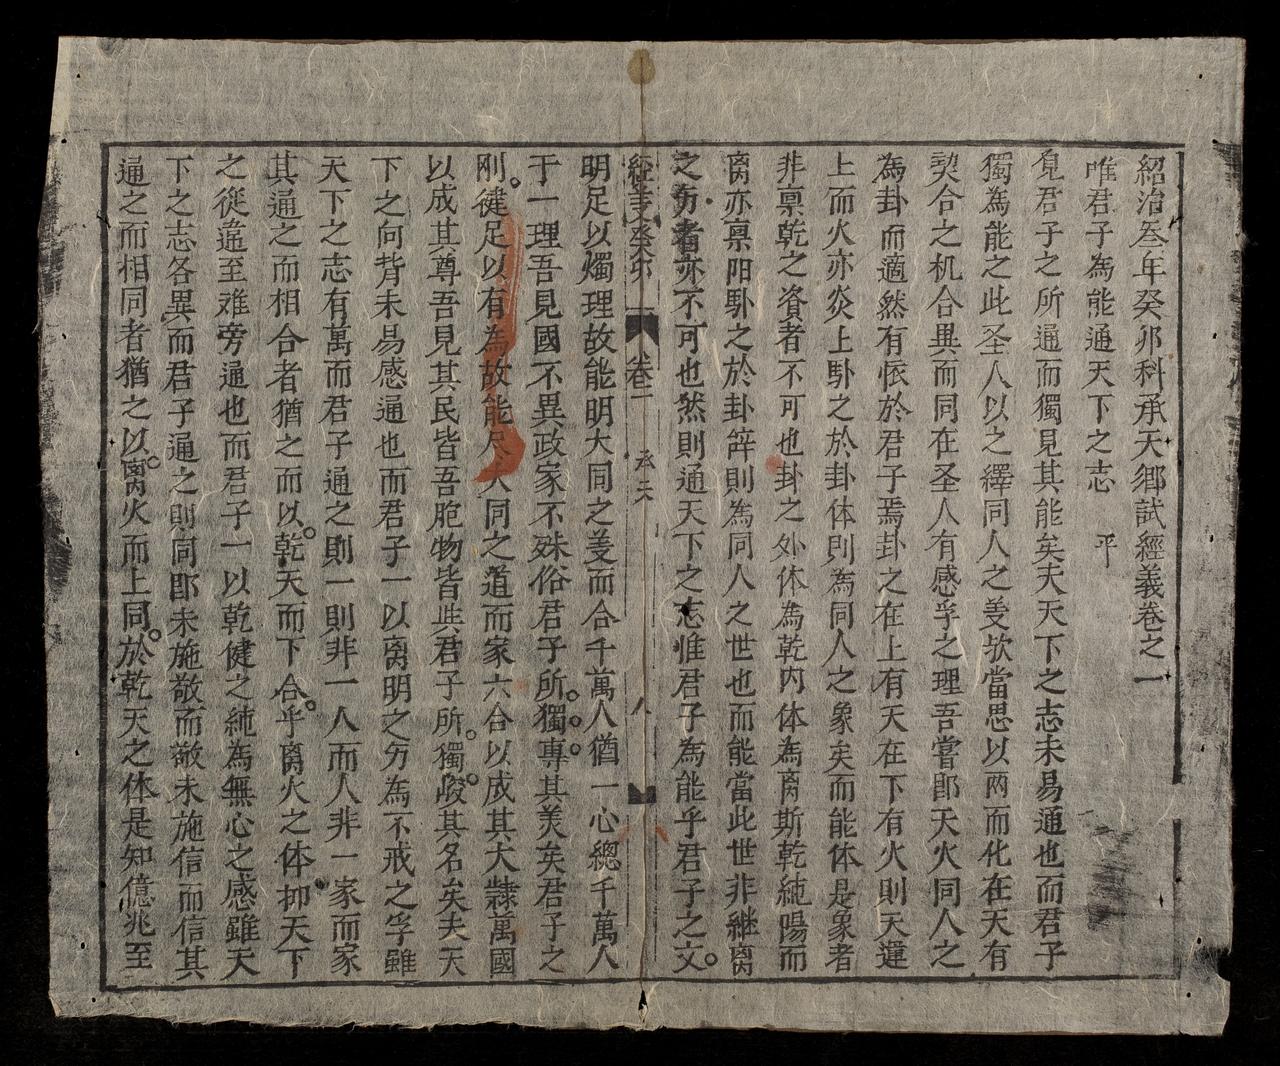 紹治叁年癸卯科承天鄉試經義卷之一
唯君子為能通天下之志 平
覓君子之所通而獨見其能矣夫天下之志未易通也而君子
獨為能之此圣人以之繹同人之義欤當思以兩而化在天有
契合之机合異而同在圣人有感孚之理吾嘗即天火同人之
為卦而適然有恢於君子焉卦之在上有天在下有火則天運
上而火亦炎上卦之於卦体則為同人之象矣而能体是象者
非禀乾之資者不可也卦之外体為乾内体為离斯乾純陽而
离亦禀阳卦之於卦辤則為同人之世也而能當此世非継离
之明者亦不可也然則通天下之志惟君子為能乎君子之文
經義癸卯 卷一 承天 八
明足以燭理故能明大同之義而合千萬人猶一心總千萬人
于一理吾見國不異政家不殊俗君子所獨專其美矣君子之
剛健足以有為故能尽大同之道而家六合以成其大隸萬國
以成其尊吾見其民皆吾胞物皆與君子所獨峻其名矣夫天
下之向背未易感通也而君子一以离明之为為不戒之孚雖
天下之志有萬而君子通之則一則非一人而人非一家而家
其通之而相合者猶之而以乾天而下合乎离火之体抑天下
之從違至难旁通也而君子一以乾健之純為無心之感雖天
下之志各異而君子通之則同即未施敬而敬未施信而信其
通之而相同者猶之以离火而上同於乾天之体是知億兆至